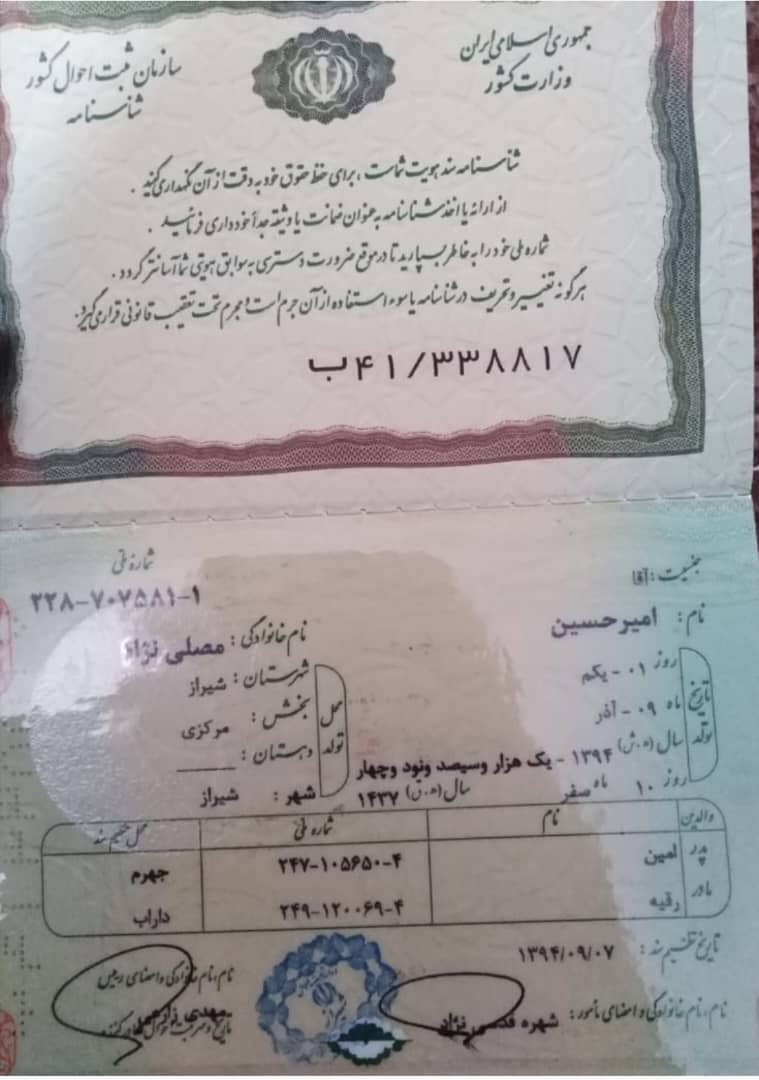 جمهوری اسلامی ایران
وزارت کشور
سازمان ثبت احوال کشور
شناسنامه
شناسنامه سند هویت شماست ، برای حفظ حقوق خود به دقت از آن نگهداری کنید .
از ارائه یا اخذ شناسنامه به عنوان ضمانت یا وثیقه جداً خودداری فرمائید .
شماره ملی خود را به خاطر بسپارید تا در موقع ضرورت دسترسی به سوابق هویتی شما آسانتر گردد .
هرگونه تغییر و تحریف در شناسنامه یا سوء استفاده از آن جرم است و مجرم تحت تعقیب قانونی قرار می گیرد.
ب۴۱/۳۳۸۸۱۷
جنسیت : آقا
شماره ملی
۲۲۸-۷۰۷۵۸۱-۱
نام : امیرحسین
نام خانوادگی : مصلی نژاد
تاریخ تولد
روز ۰۱ - یکم
ماه ۰۹ - آذر
سال (ه.ش) ۱۳۹۴ - یک هزار وسیصد ونود وچهار
روز ۱۰ ماه صفر سال (ه.ق) ۱۴۳۷
محل تولد
شهرستان : شیراز
بخش : مرکزی
دهستان :
شهر : شیراز
والدین نام شماره ملی محل تنظیم سند
پدر امین ۲۴۷-۱۰۵۶۵۰-۴ جهرم
مادر رقیه ۲۴۹-۱۲۰۰۶۹-۴ داراب
تاریخ تنظیم سند : ۱۳۹۴/۰۹/۰۷
نام، نام خانوادگی و امضای مأمور : شهره قدسی نژاد
نام، نام خانوادگی و امضای رییس
مهدی